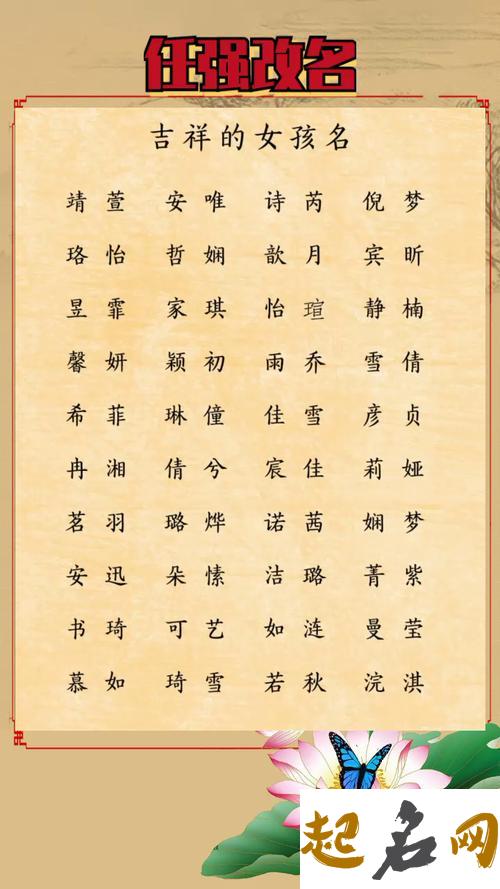 任强改名
吉祥的女孩名
靖萱 安唯 诗芮 倪梦
珞怡 哲娴 歆月 宾昕
昱霏 家琪 怡瑄 静楠
馨妍 颖初 雨乔 雪倩
希菲 琳僮 佳雪 彦贞
冉湘 倩兮 宸佳 莉娅
茗羽 璐烨 诺茜 娴梦
安迅 朵愫 洁璐 菁紫
书琦 可艺 如涟 曼莹
慕如 琦雪 若秋 浣淇
起名网